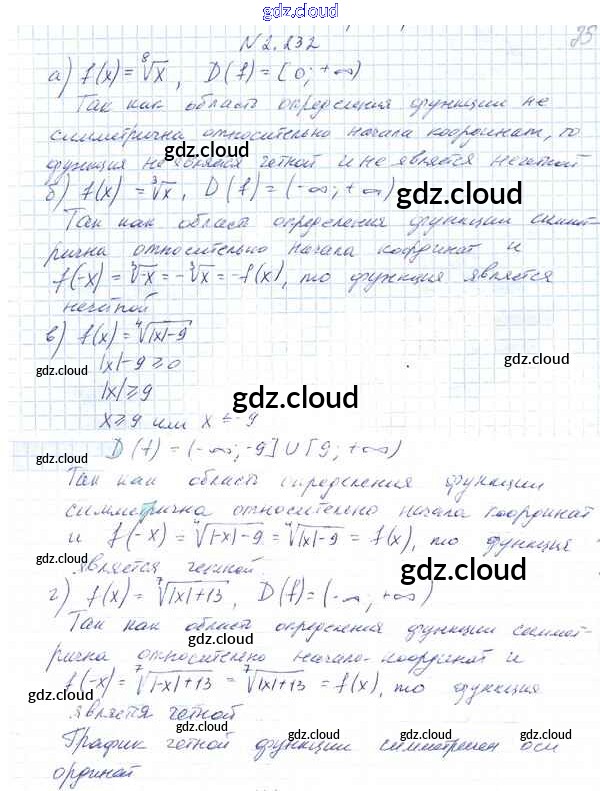 gdz.cloud
№ 2.232
а) f(x) = ⁸√x, D(f) = [0; +∞)
Так как область определения функции не
симметрична относительно начала координат, то
функция не является четной и не является нечетной
gdz.cloud
б) f(x) = ³√x, D(f) = (-∞; +∞)
gdz.cloud
Так как область определения функции симмет-
рична относительно начала координат и
f(-x) = ³√-x = -³√x = -f(x), то функция является
gdz.cloud
нечетной
в) f(x) = ⁴√|x|-9
gdz.cloud
|x| - 9 ≥ 0
gdz.cloud
|x| ≥ 9
gdz.cloud
x ≥ 9 или x ≤ -9
D(f) = (-∞; -9] ∪ [9; +∞)
gdz.cloud
gdz.cloud
Так как область определения функции
симметрична относительно начала координат
и f(-x) = ⁴√|-x|-9 = ⁴√|x|-9 = f(x), то функция
gdz.cloud
является четной.
gdz.cloud
г) f(x) = ⁷√|x|+13, D(f) = (-∞; +∞)
Так как область определения функции симмет-
gdz.cloud
gdz.cloud
рична относительно начала координат и
f(-x) = ⁷√|-x|+13 = ⁷√|x|+13 = f(x), то функция
gdz.cloud
gdz.cloud
является четной
График четной функции симметричен оси
gdz.cloud
gdz.cloud
ординат